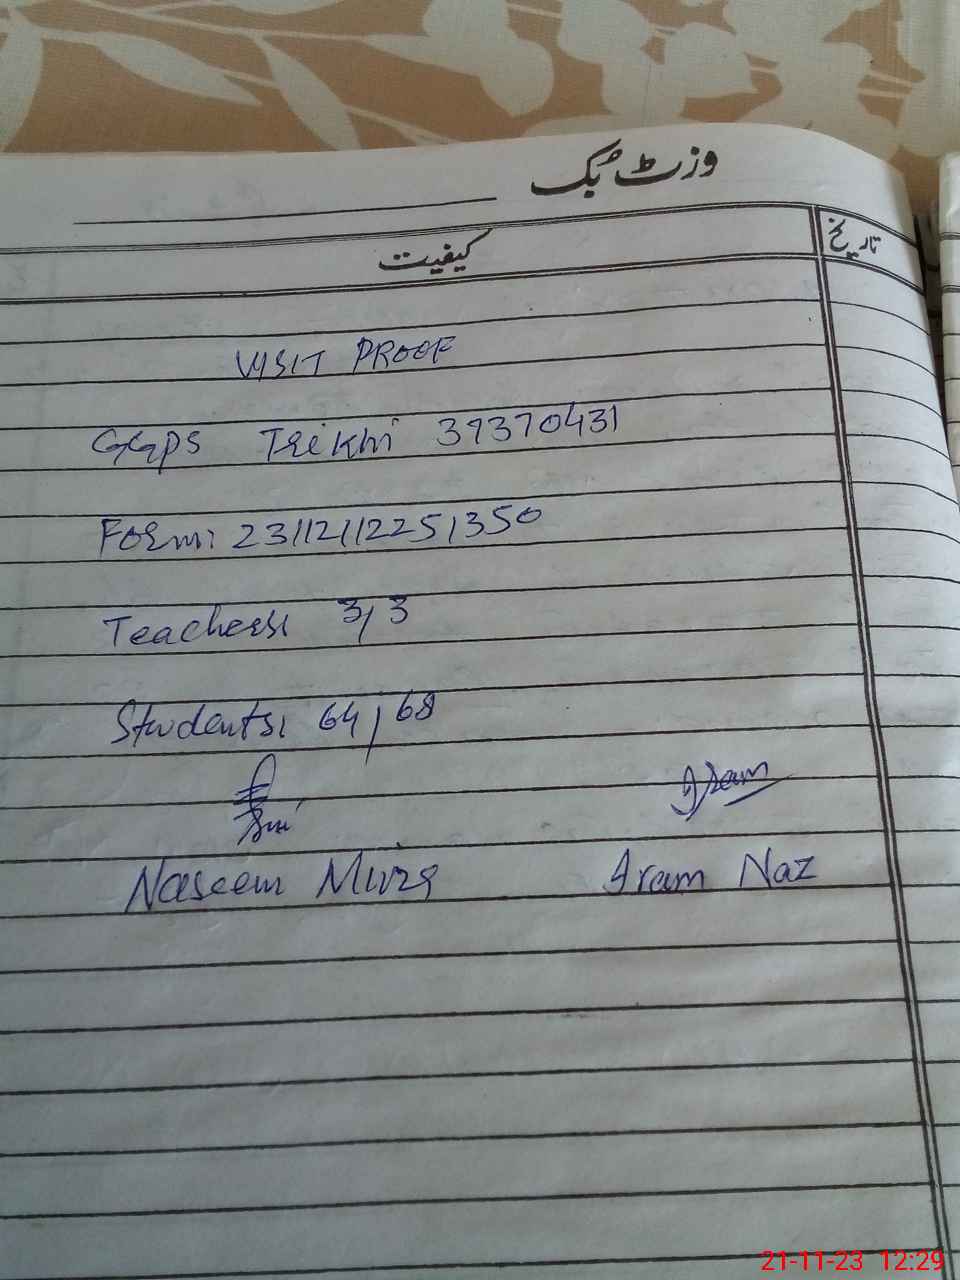 وزٹ بک
تاریخ
کیفیت
VISIT PROOF
GGPS Trikhi 39370431
Form: 23112112251350
Teachers: 3/3
Students: 64/68
Iram
Naseem Mirza Iram Naz
21-11-23 12:29